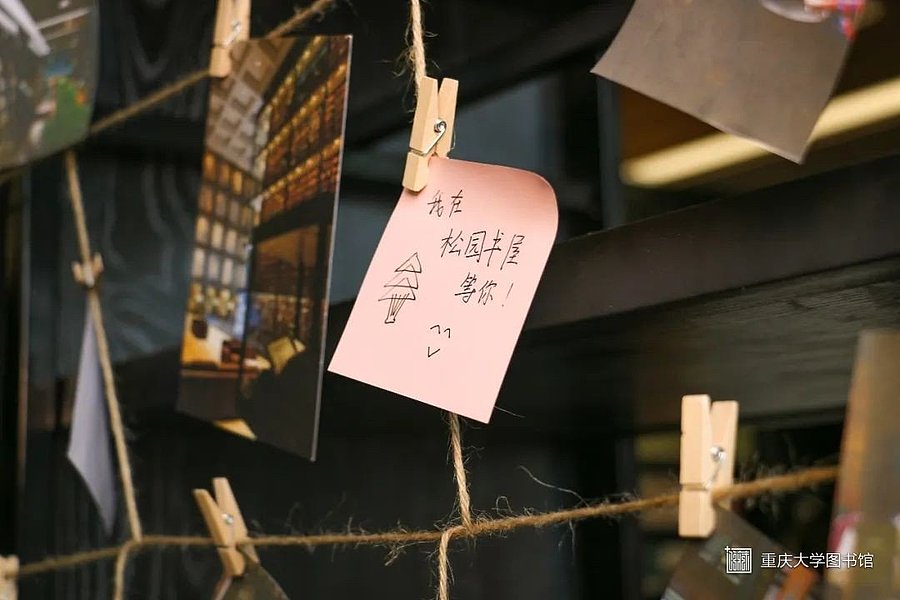 我在
松园书屋
等你！
重庆大学图书馆